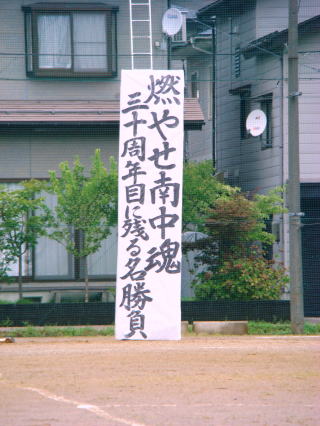 燃やせ南中魂
三十周年目に残る名勝負